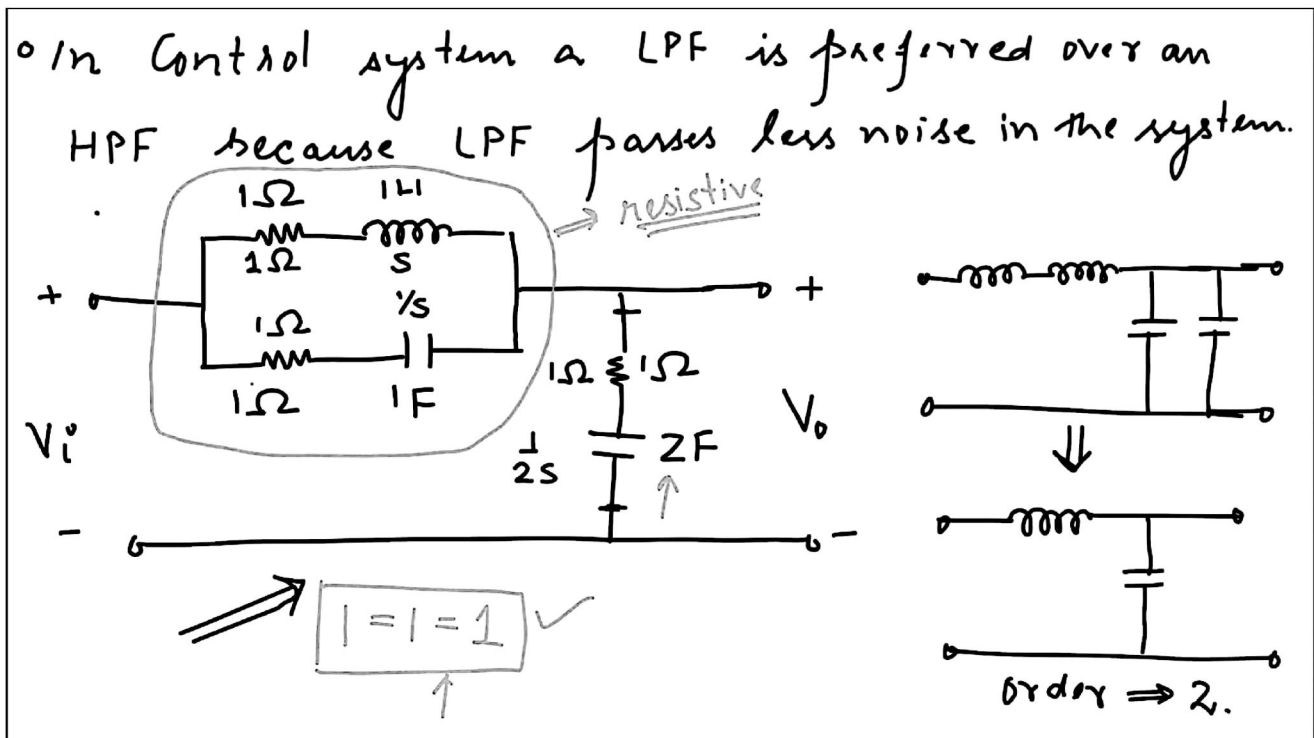 ° In Control system a LPF is preferred over an
HPF because LPF passes less noise in the system.
1Ω 1H
⇒ resistive
1Ω S
+ 1/S +
1Ω
1Ω 1Ω
1Ω 1F
Vi Vo
1/2S 2F
- -
⇓
1 = 1 = 1 ✓
order ⇒ 2.